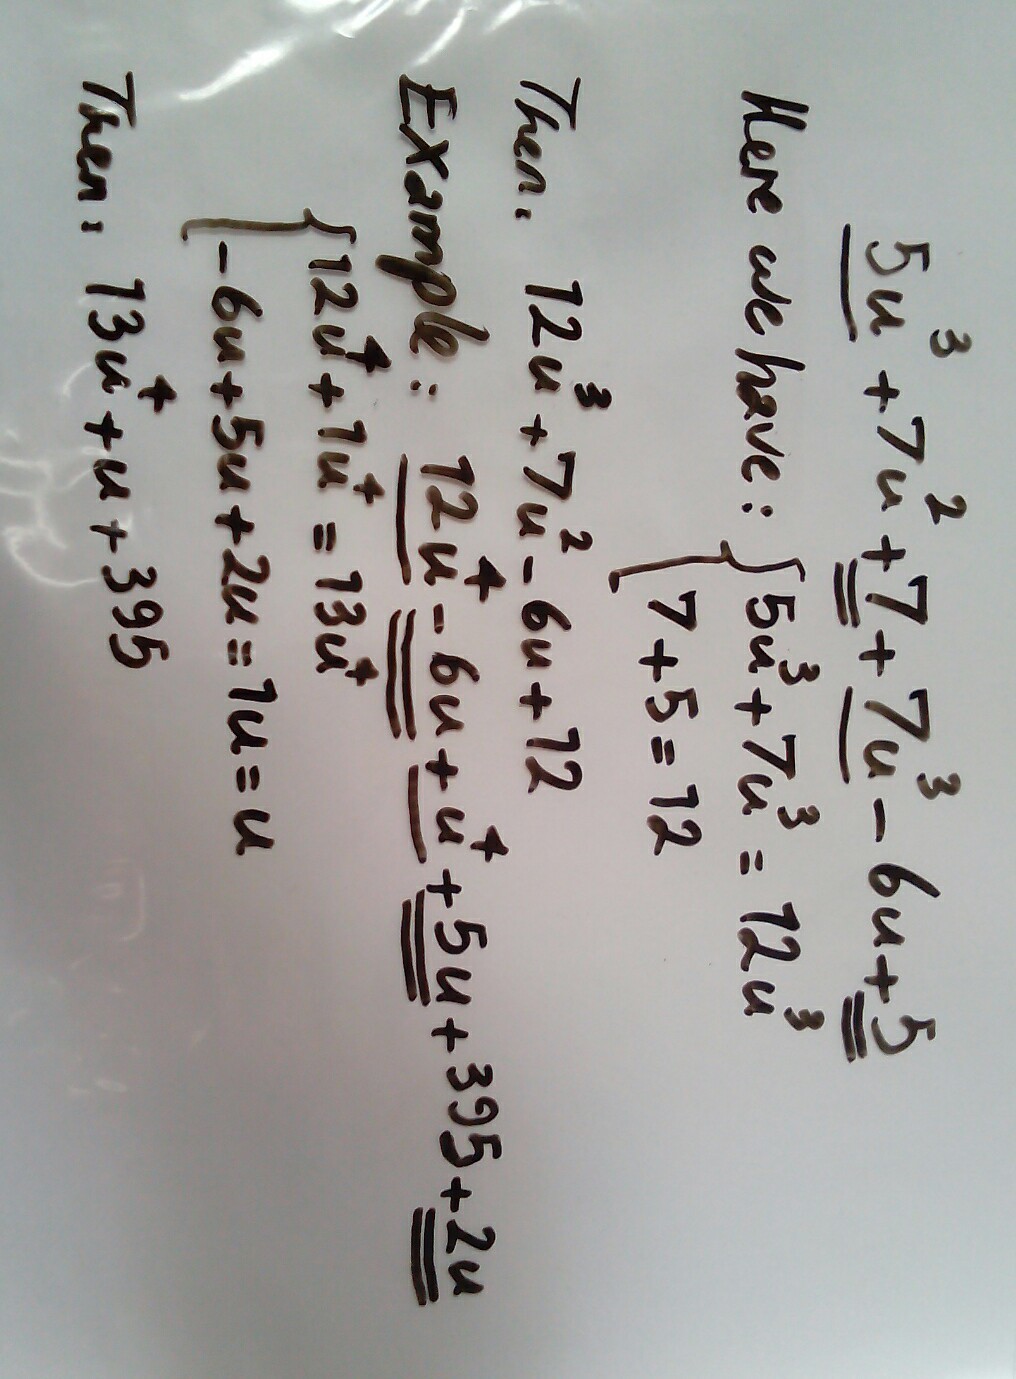 5u³ + 7u² + 7 + 7u³ - 6u + 5
Here we have : { 5u³ + 7u³ = 12u³
7 + 5 = 12
Then : 12u³ + 7u² - 6u + 12
Example : 12u⁴ - 6u + u⁴ + 5u + 395 + 2u
{ 12u⁴ + 1u⁴ = 13u⁴
- 6u + 5u + 2u = 1u = u
Then : 13u⁴ + u + 395